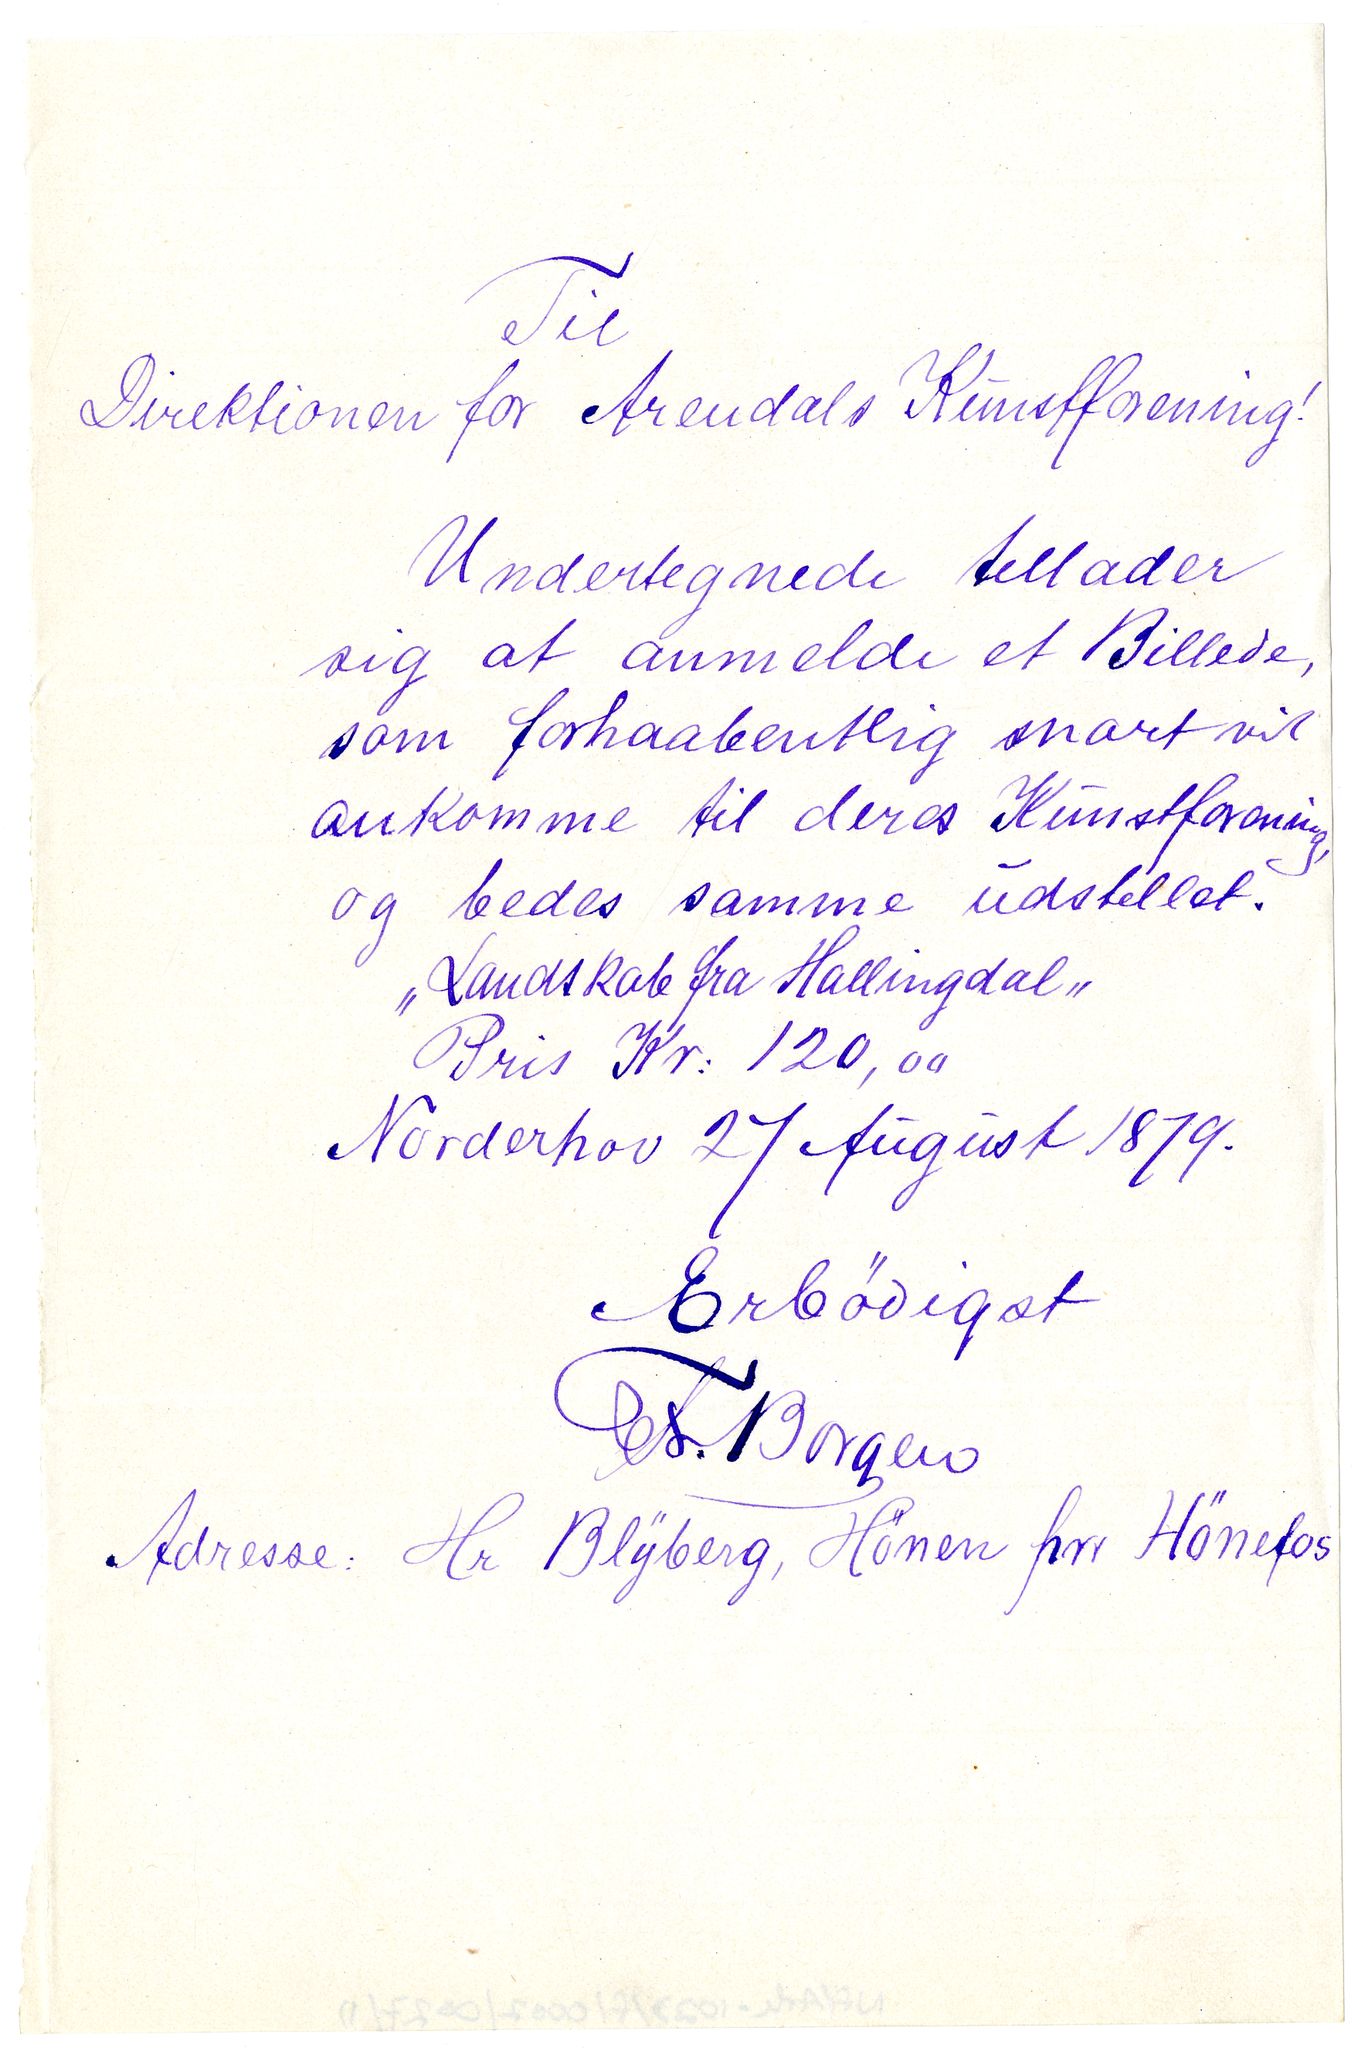 Til
Direktionen for Arendals Kunstforening!
Undertegnede tillader
sig at anmelde et Billede,
som forhaabentlig snart vil
ankomme til deres Kunstforening,
og bedes samme udstillet.
„Landskab fra Hallingdal„
Pris Kr: 120,00
Norderhov 27 August 1879.
Erbödigst
Borgen
Adresse: Hr Blÿberg, Hönen pr Hönefos